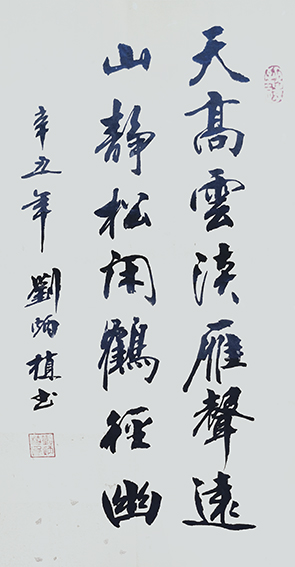 天髙雲淡雁聲遠
山靜松闲鶴徑幽
辛丑年 劉炳书